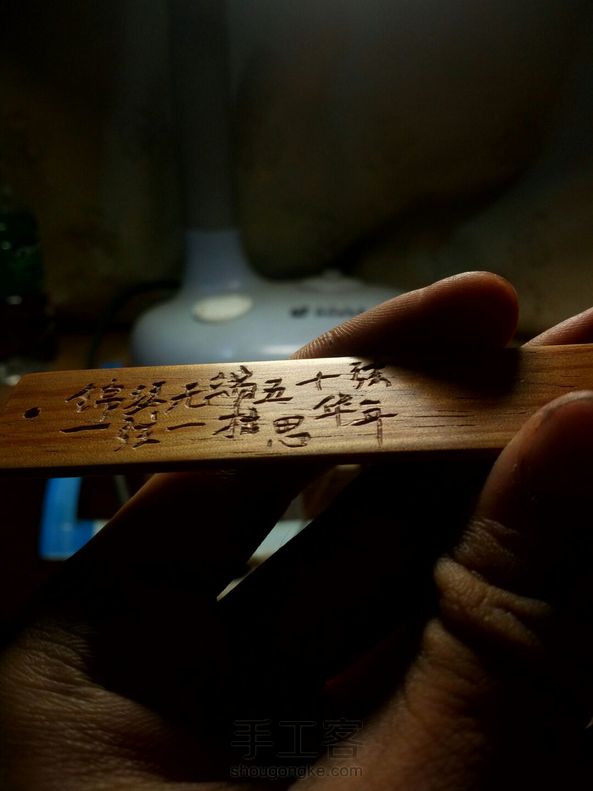 锦瑟无端五十弦
一弦一柱思华年
手工客
shougongke.com